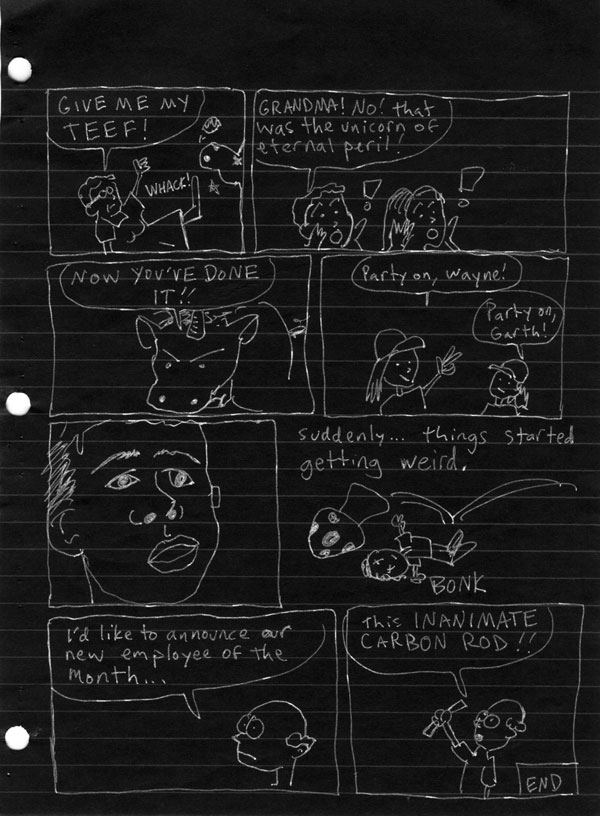 GIVE ME MY
TEEF!
WHACK!
GRANDMA! NO! that
was the unicorn of
eternal peril!
!
!
NOW YOU'VE DONE
IT!!
Party on, Wayne!
Party on,
Garth!
suddenly... things started
getting weird.
BONK
I'd like to announce our
new employee of the
Month...
This INANIMATE
CARBON ROD!!
END